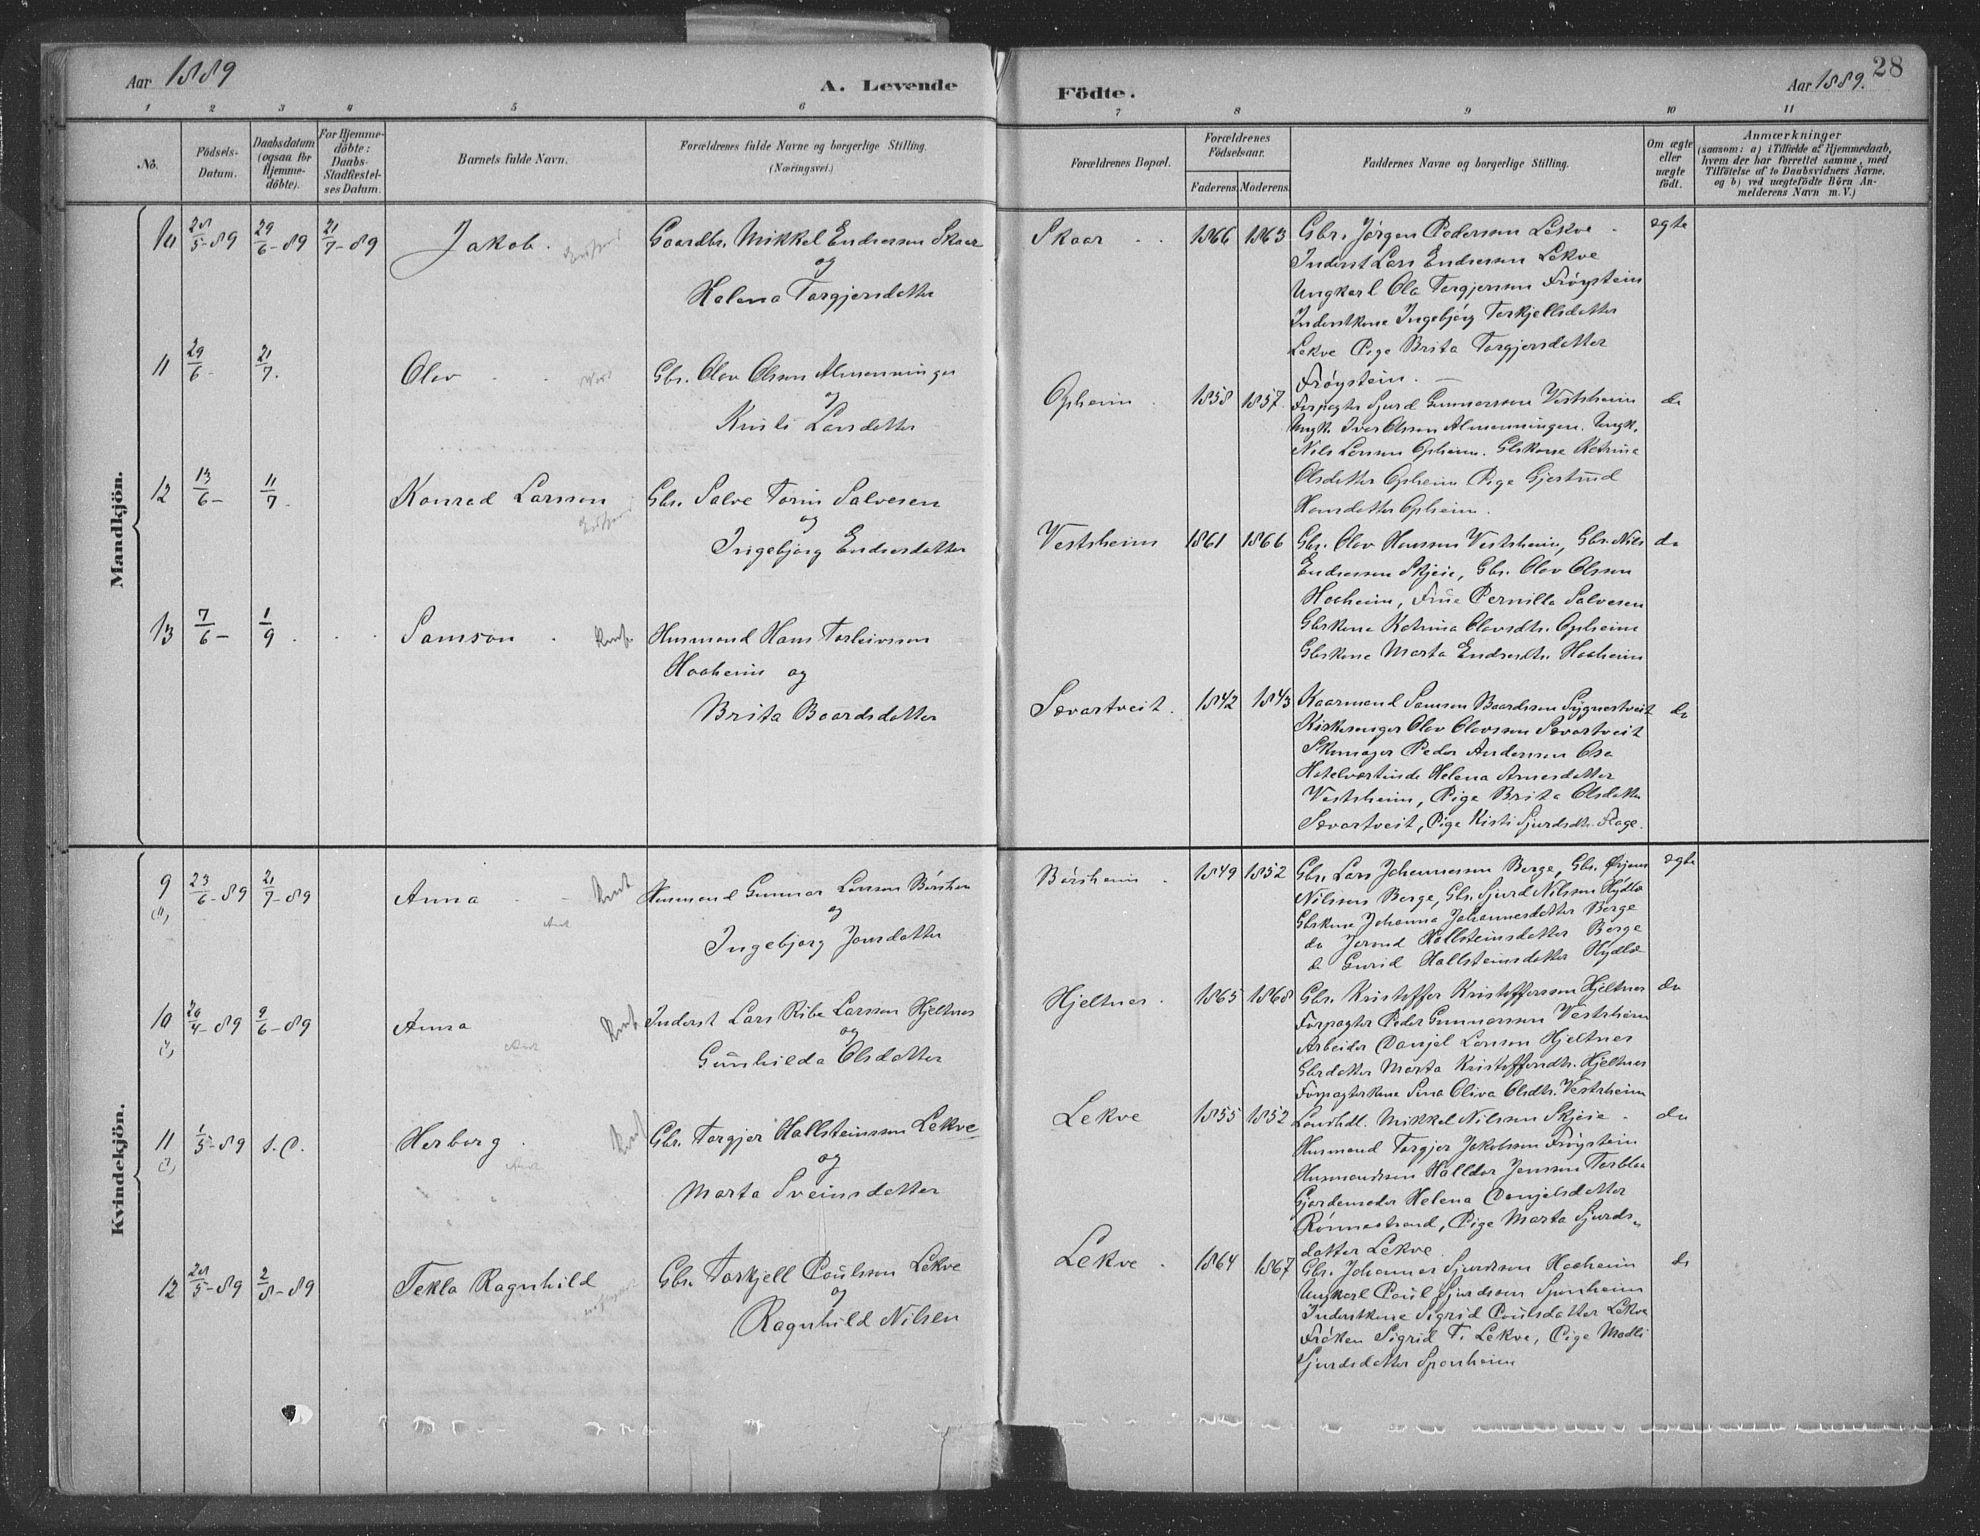 Aar 1889
A. Levende
Födte.
Aar 1889.
28
1 2 3 4 5 6 7 8 9 10 11
No.
Födsels-
Datum.
Daabsdatum
(ogsaa för
Hjemme-
döbte).
For Hjemme-
döbte:
Daabs-
Stadfæstel-
ses Datum.
Barnets fulde Navn.
Forældrenes fulde Navne og borgerlige Stilling.
(Næringsvei.)
Forældrenes Bopæl.
Forældrenes
Födselsaar.
Faderens.
Moderens.
Faddernes Navne og borgerlige Stilling.
Om ægte
eller
uægte
födt.
Anmærkninger
(saasom: a) i Tilfælde af Hjemmedaab,
hvem der har forrettet samme, med
Tilföielse af to Daabsvidners Navne,
og b) ved uægtefödte Börn An-
melderens Navn m. V.)
Mandkjön.
10 28/5-89 29/6-89 21/7-89 Jakob. Gaardbr. Mikkel Endresen Skaar
og
Helena Torgjersdatter
Skaar 1866 1863 Gbr. Jörgen Pedersen Lekve ægte
Inderst Lars Endresen Lekve
Ungkarl Ola Torgjersen Fröystein
Inderstkone Ingebjörg Torkjellsdatter
Lekve Pige Brita Torgjersdatter
Fröystein.
11 29/6 21/7. Olav Gbr. Olav Olsen Almenningen
og
Kristi Larsdatter
Opheim 1858 1857. Forpagter Sjurd Gunnarsson Vestrheim do
Ungk. Ivar Olsson Almenningen. Ungk.
Nils Larsen Opheim. Gbskone Katrina
Olsdatter Opheim Pige Gjertrud
Hansdatter Opheim.
12 13/6- 11/7. Konrad Larsson Gbr. Salve Torin Salvesen
og
Ingebjörg Endresdatter
Vestrheim 1861 1866 Gbr. Olav Hanssen Vestrheim, Gbr. Nils do
Endresson Skjeie, Gbr. Olav Olsson
Haaheim, Frue Pernilla Salvesen
Gbskone Katrina Olavsdtr. Opheim
Gbskone Marta Endresdtr. Haaheim
13 7/6- 1/9 Samson Konf. Husmand Hans Torleivsson
Haaheim og
Brita Baardsdatter
Sævartveit. 1842 1843 Kaarmand Samson Baardsson Sygnestveit do
Kirkesanger Olav Olavsson Sævartveit
Skomager Peder Anderssen Osa
Hotelvertinde Helena Arnesdatter
Vestrheim, Pige Brita Olsdatter
Sævartveit, Pige Kisti Sjurdsdtr. Flage.
Kvindekjön.
9 23/6-89 21/7-89 Anna Konf Husmand Gunnar Larsson Börsheim
og
Ingebjörg Jonsdatter
Börsheim 1849 1852 Gbr. Lars Johannesson Berge, Gbr. Örjans ægte
Nilssen Berge, Gbr. Sjurd Nilsson Hydle
Gbskone Johanna Johannesdatter Berge
do Jorund Hallsteinsdatter Berge
do Gurid Hallsteinsdatter Hydle
10 20/4-89 9/6-89 Anna Konf Inderst Lars Ribe Larsson Hjeltnes
og
Gunhilda Olsdatter
Hjeltnes. 1865 1868 Gbr. Kristoffer Kristoffersson Hjeltnes do
Forpagter Peder Gunnarsson Vestrheim
Arbeider Danjel Larsson Hjeltnes
Gbrdatter Marta Kristoffersdtr. Hjeltnes
Forpagterkone Sina Oliva Olsdtr. Vestrheim
11 1/5-89 s.D. Herborg. Konf Gbr. Torgjer Hallsteinsson Lekve
og
Marta Sveinsdatter
Lekve 1855 1852 Landhdl. Mikkel Nilsson Skjeie do
Husmand Torgjer Jakobsson Fröystein
Husmandssön Halldor Jonsson Torblaa
Gjordemoder Helena Danjelsdatter
Rönnestrand, Pige Marta Sjurds-
datter Lekve.
12 28/5-89 2/8-89 Tekla Ragnhild Gbr. Torkjell Poulsson Lekve
og
Ragnhild Nilsen
Lekve. 1864 1867 Gbr. Johannes Sjurdsson Haaheim do
Ungkarl Poul Sjurdsson Sponheim
Inderstkone Sigrid Poulsdatter Lekve
Fröken Sigrid T. Lekve, Pige Madli
Sjurdsdatter Sponheim